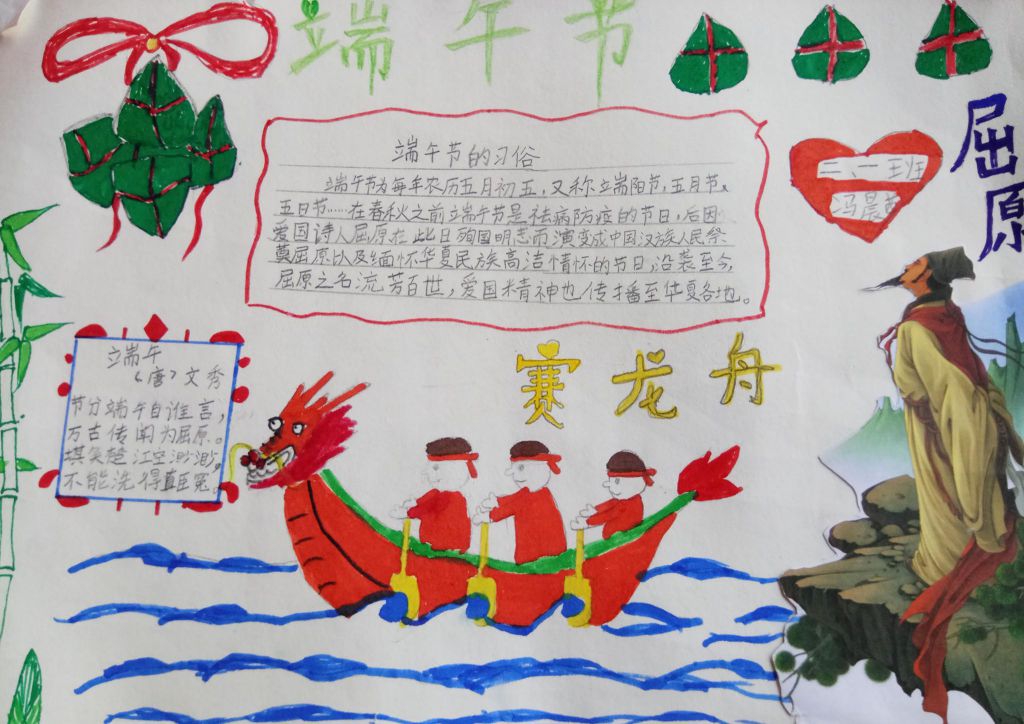 端午节
屈原
二、一班
冯晨
端午节的习俗
端午节为每年农历五月初五，又称端阳节，五月节、
五日节……在春秋之前端午节是祛病防疫的节日，后因
爱国诗人屈原在此日殉国明志而演变成中国汉族人民祭
奠屈原以及缅怀华夏民族高洁情怀的节日，沿袭至今，
屈原之名流芳百世，爱国精神也传播至华夏各地。
端午
〈唐〉文秀
节分端午自谁言，
万古传闻为屈原。
堪笑楚江空渺渺，
不能洗得直臣冤。
赛龙舟